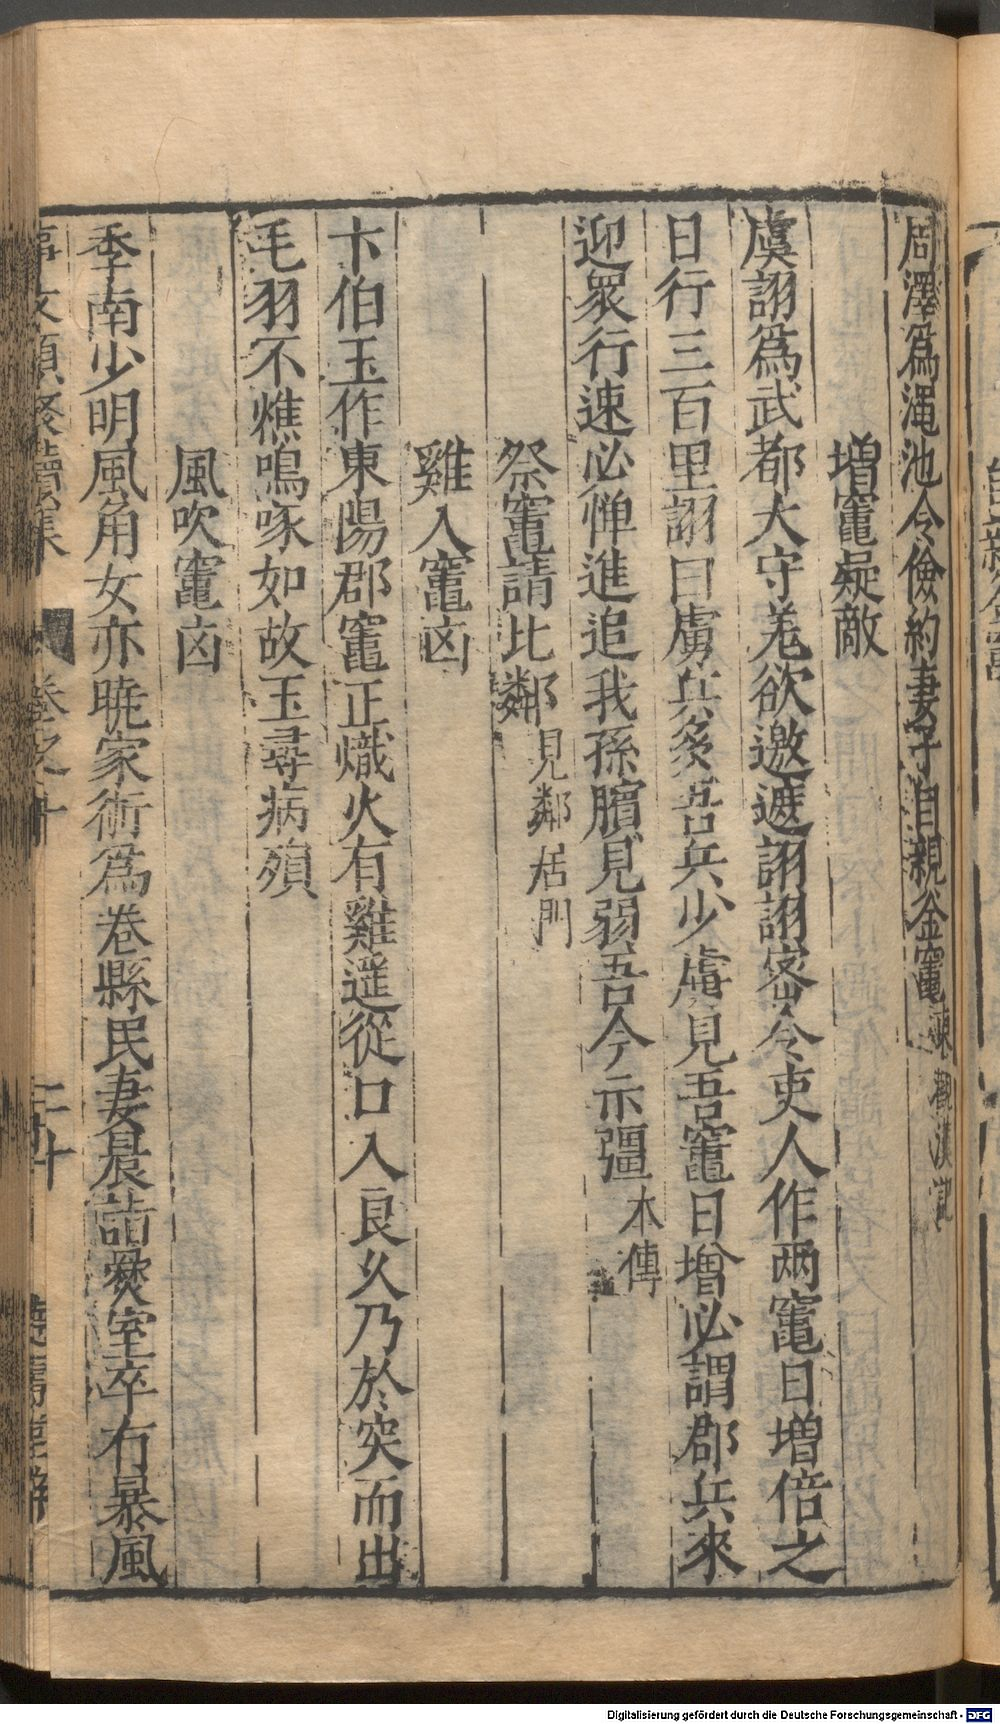 周澤爲澠池令儉約妻子自親釜竈東觀漢記
增竈疑敵
虞詡爲武都大守羌欲邀遮詡詡宻令吏人作两竈日增倍之
日行三百里詡曰虜兵多吾兵少虜見吾竈日增必謂郡兵來
迎衆行速必憚進追我孫臏見弱吾今示彊本傳
祭竈請比鄰見鄰居門
雞入竈凶
卞伯玉作東陽郡竈正熾火有雞遥從口入良久乃於突而出
毛羽不燋鳴啄如故玉尋病殞
風吹竈凶
季南少明風角女亦曉家術爲卷縣民妻晨詣爨室卒有暴風
事文類聚續集 卷之十 二十
Digitalisierung gefördert durch die Deutsche Forschungsgemeinschaft - DFG